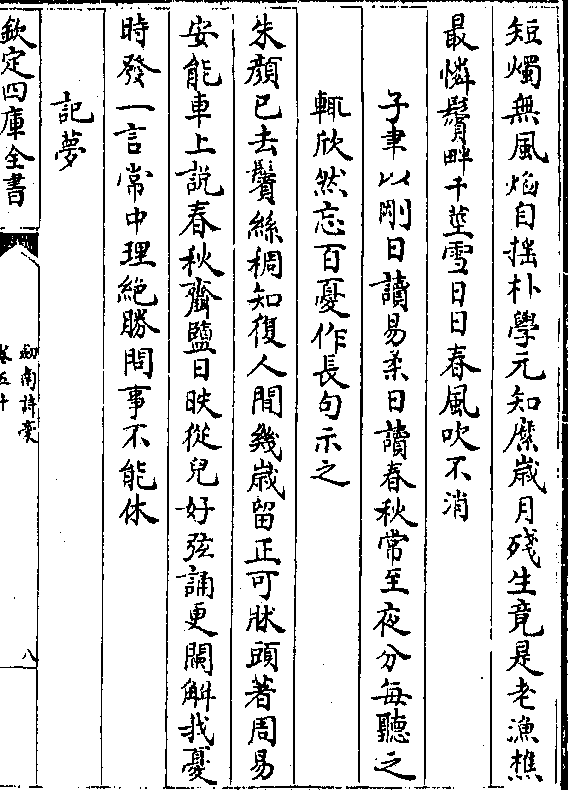 短燭無風焰自揺朴學元知縻歳月殘生竟是老漁樵
最憐鬢畔千莖雪日日春風吹不消
子聿以剛日讀易柔日讀春秋常至夜分每聽之
輒欣然忘百憂作長句示之
朱顔已去鬢絲稠知復人間幾歳留正可牀頭著周易
安能車上説春秋齏鹽日映從兒好弦誦更闌解我憂
時發一言常中理絶勝問事不能休
記夢
欽定四庫全書
劒南詩稾
卷五十
八